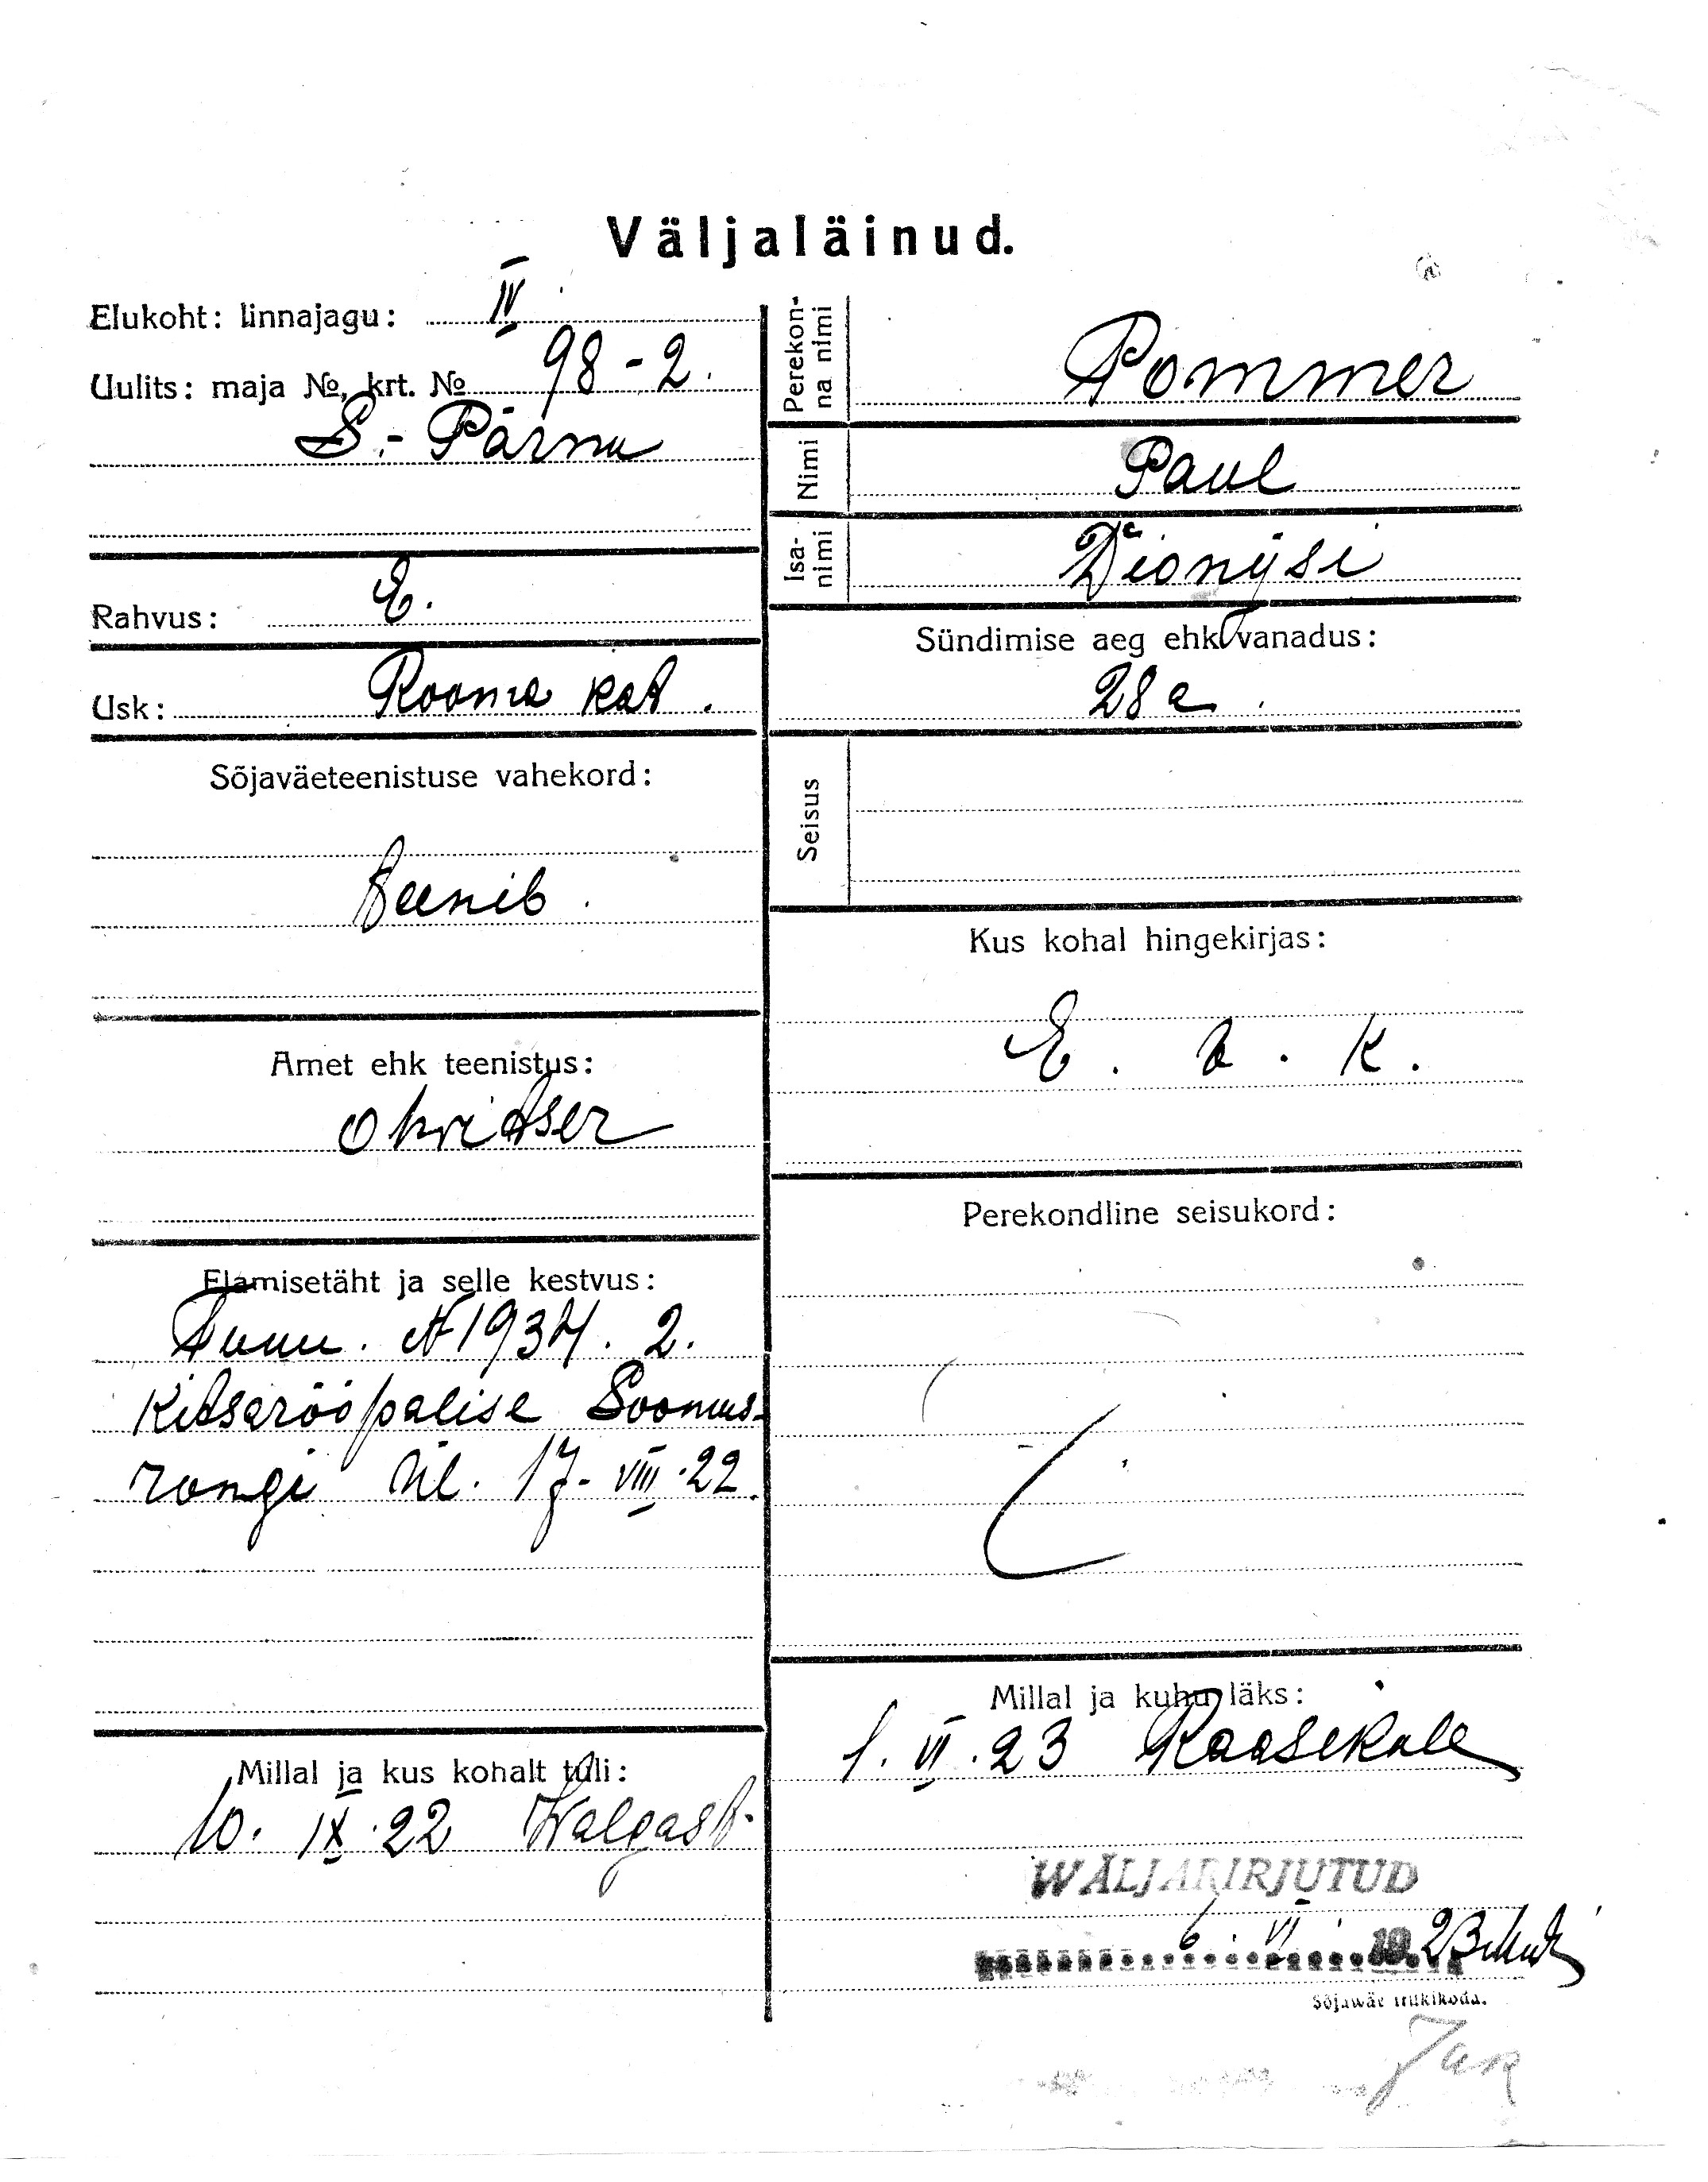 Väljaläinud.
Elukoht: linnajagu: IV
Uulits: maja №, krt. № 98-2.
S.-Pärnu
Rahvus: E.
Usk: Rooma kat.
Sõjaväeteenistuse vahekord:
teenib.
Amet ehk teenistus:
ohvitser
Elamisetäht ja selle kestvus:
Tunn. № 1934. 2.
Kitsarööpalise Soomus-
rongi ül. 17-VIII.22.
Millal ja kus kohalt tuli:
10. IX.22 Walgast.
Perekon-
na nimi
Pommer
Nimi
Paul
Isa-
nimi
Dionysi
Sündimise aeg ehk vanadus:
28 a.
Seisus
Kus kohal hingekirjas:
E. v. k.
Perekondline seisukord:
Millal ja kuhu läks:
1. VI.23 Raasikule
WÄLJAKIRJUTUD
6. VI. 1923
Sõjawäe trükikoda.